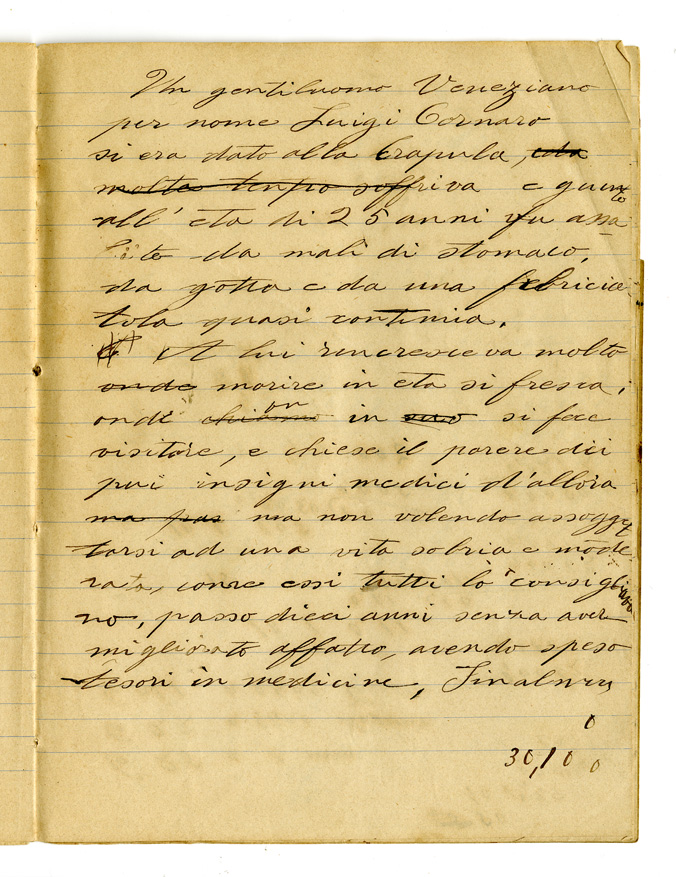 Un gentiluomo Veneziano
per nome Luigi Cornaro
si era dato alla Crapula, eda
molto tempo soffriva e quan
to
all' eta di 25 anni fu assa
lito da mali di stomaco,
da gotta e da una febricia
tola quasi continua.
A lui rincresceva molto
onde morire in eta si fresca,
onde in suo si fece
visitare, e chiese il parere dei
pui insigni medici d'allora
ma pas ma non volendo assogge
tarsi ad una vita sobria e mode
rata, come essi tutti lo consiglava
no, passo dieci anni senza aver
migliorato affatto, avendo speso
tesori in medicine, Finalmen
0
30,10 0